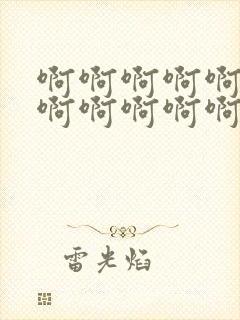 啊啊啊啊啊
啊啊啊啊啊
雷光焰